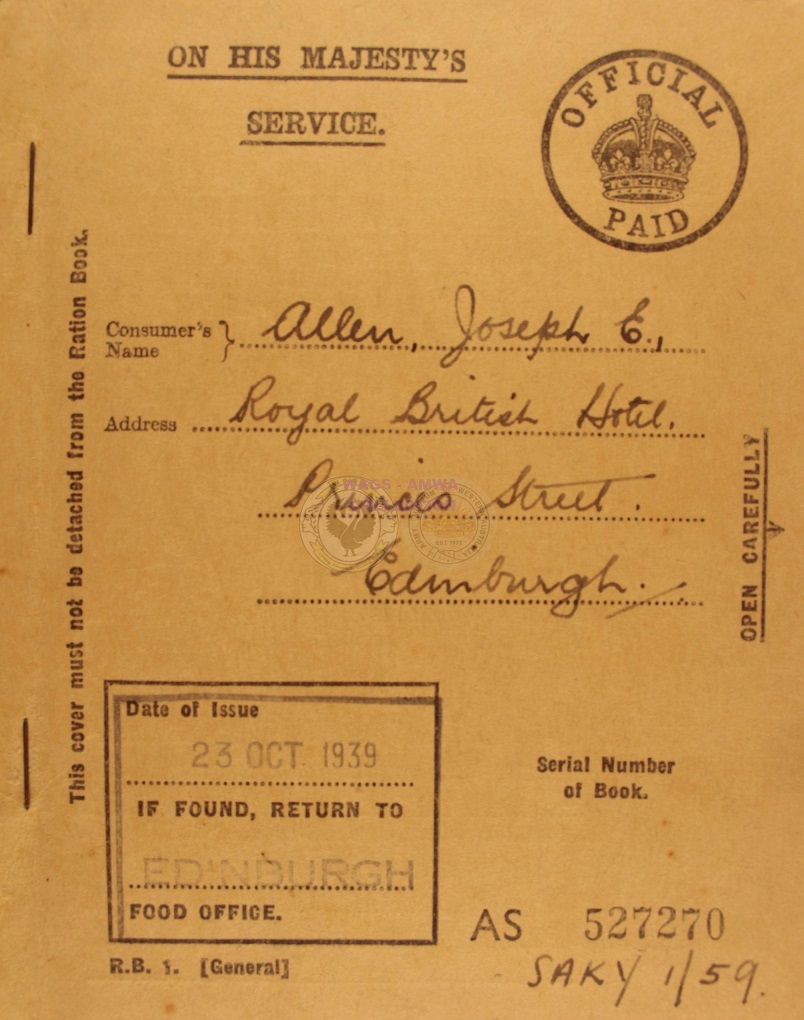 ON HIS MAJESTY'S
SERVICE.
OFFICIAL
PAID
This cover must not be detached from the Ration Book.
Consumer's Name } Allen, Joseph E.,
Address Royal British Hotel.
Princes Street.
Edinburgh.
OPEN CAREFULLY
WAGS - AMWA
Date of Issue
23 OCT 1939
IF FOUND, RETURN TO
EDINBURGH
FOOD OFFICE.
Serial Number
of Book.
AS 527270
R.B. 1. [General]
SAKY 1/59.